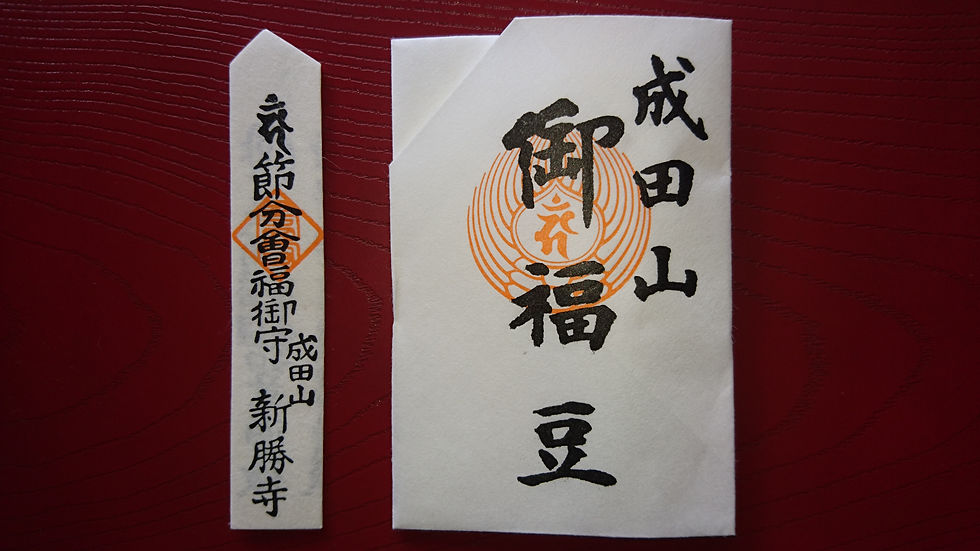 節分會福御守
成田山
新勝寺
成田山
御福豆